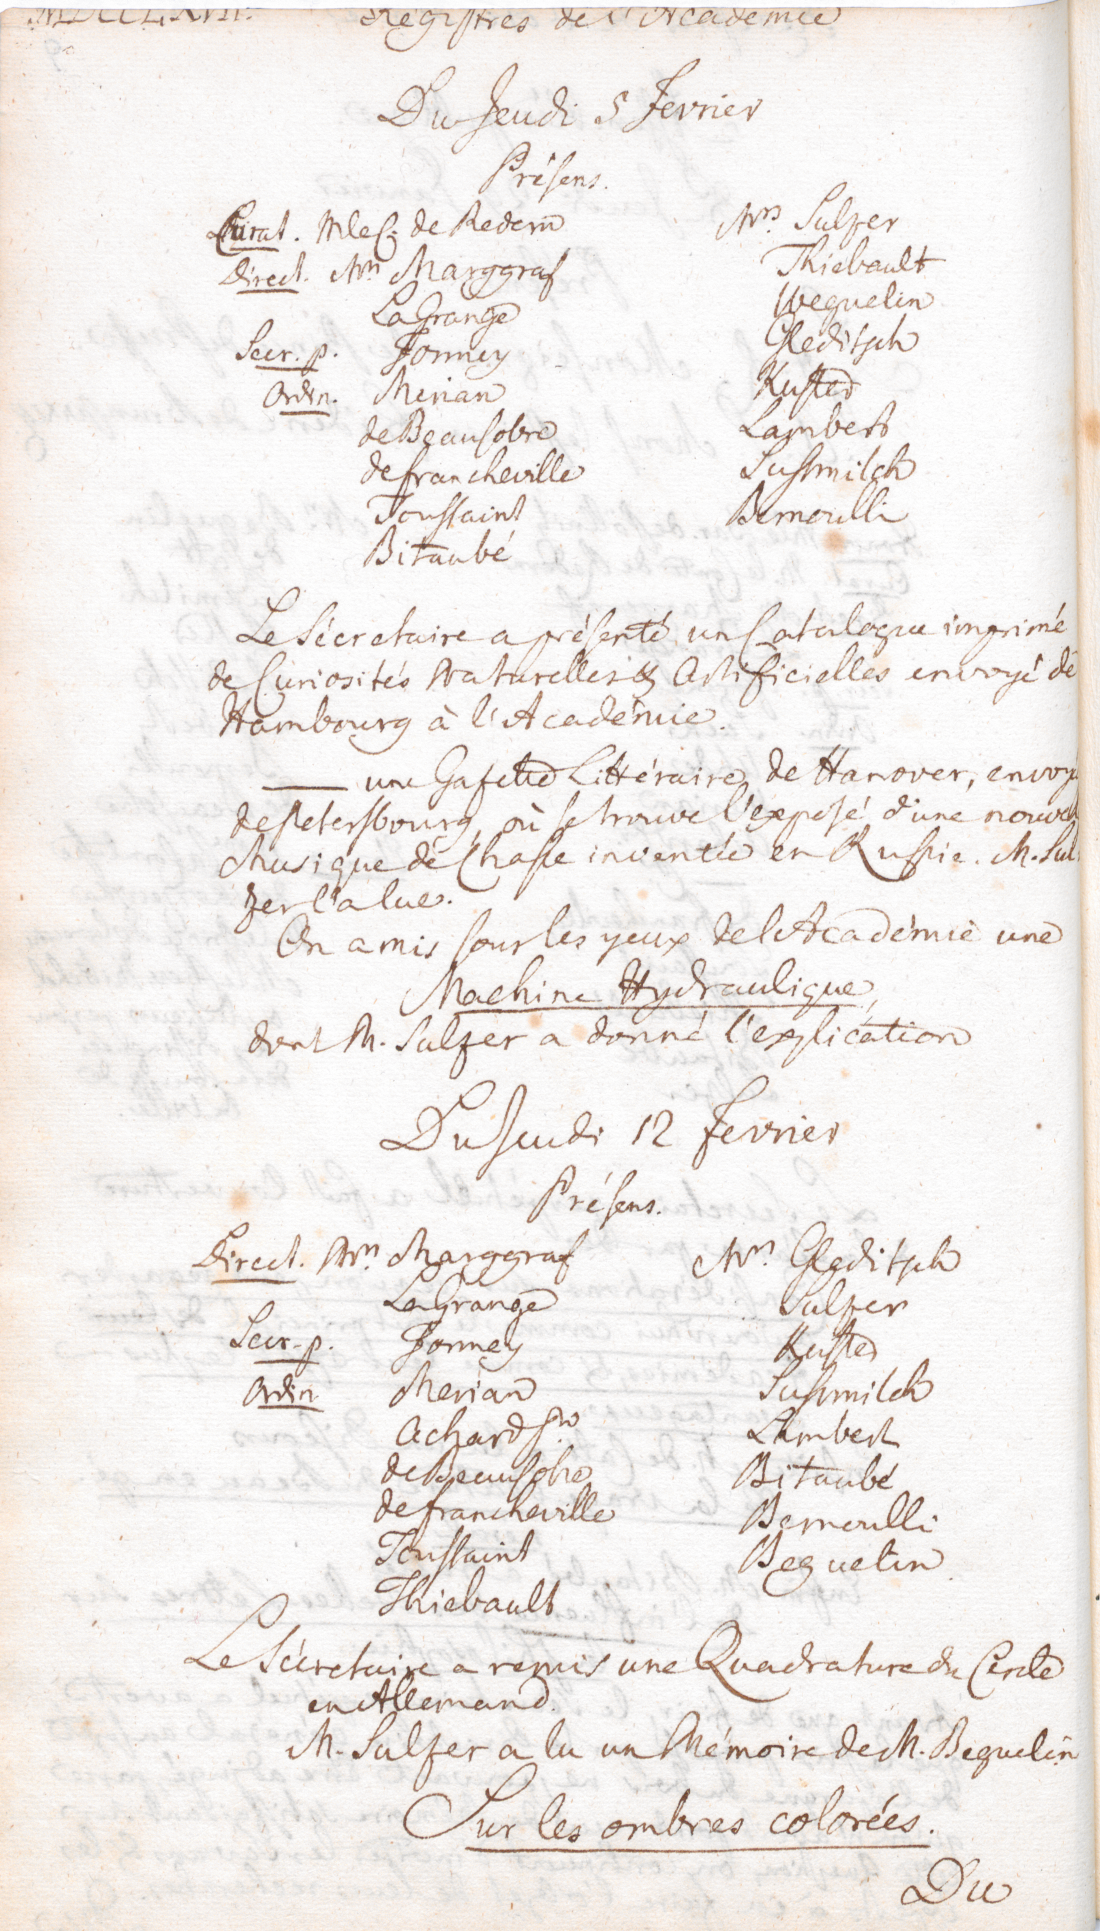 MDCCLXVII. Registres de l'Academie
Du Jeudi 5 Fevrier
Présens.
Curat. M le C. de Redern
Direct. Mrs Marggraf
La Grange
Secr. p. Formey
Ordin. Merian
de Beausobre
de francheville
Toussaint
Bitaubé
Mrs. Sulzer
Thiebault
Weguelin
Gleditsch
Kuster
Lambert
Sussmilch
Bernoulli
Le Sécretaire a présenté un Catalogue imprimé
de Curiosités Naturelles & Artificielles envoyé de
Hambourg à l'Académie.
—— une Gazette Littéraire de Hanover, envoyé
de Petersbourg, où se trouve l'exposé d'une nouvel
Musique de Chasse inventée en Russie. M. Sul
zer l'a lue.
On a mis sous les yeux de l'Académie une
Machine Hydraulique,
dont M. Sulzer a donné l'explication
Du Jeudi 12 Fevrier
Présens.
Direct. Mrs. Marggraf
La Grange
Secr. p. Formey
Ordin. Merian
Achard Sr.
de Beausobre
de francheville
Toussaint
Thiebault
Mrs. Gleditsch
Sulzer
Kuster
Sussmilch
Lambert
Bitaubé
Bernoulli
Beguelin
Le Sécretaire a remis une Quadrature du Cercle
en Allemand.
M. Sulzer a lu un Mémoire de M. Beguelin
Sur les ombres colorées.
Du